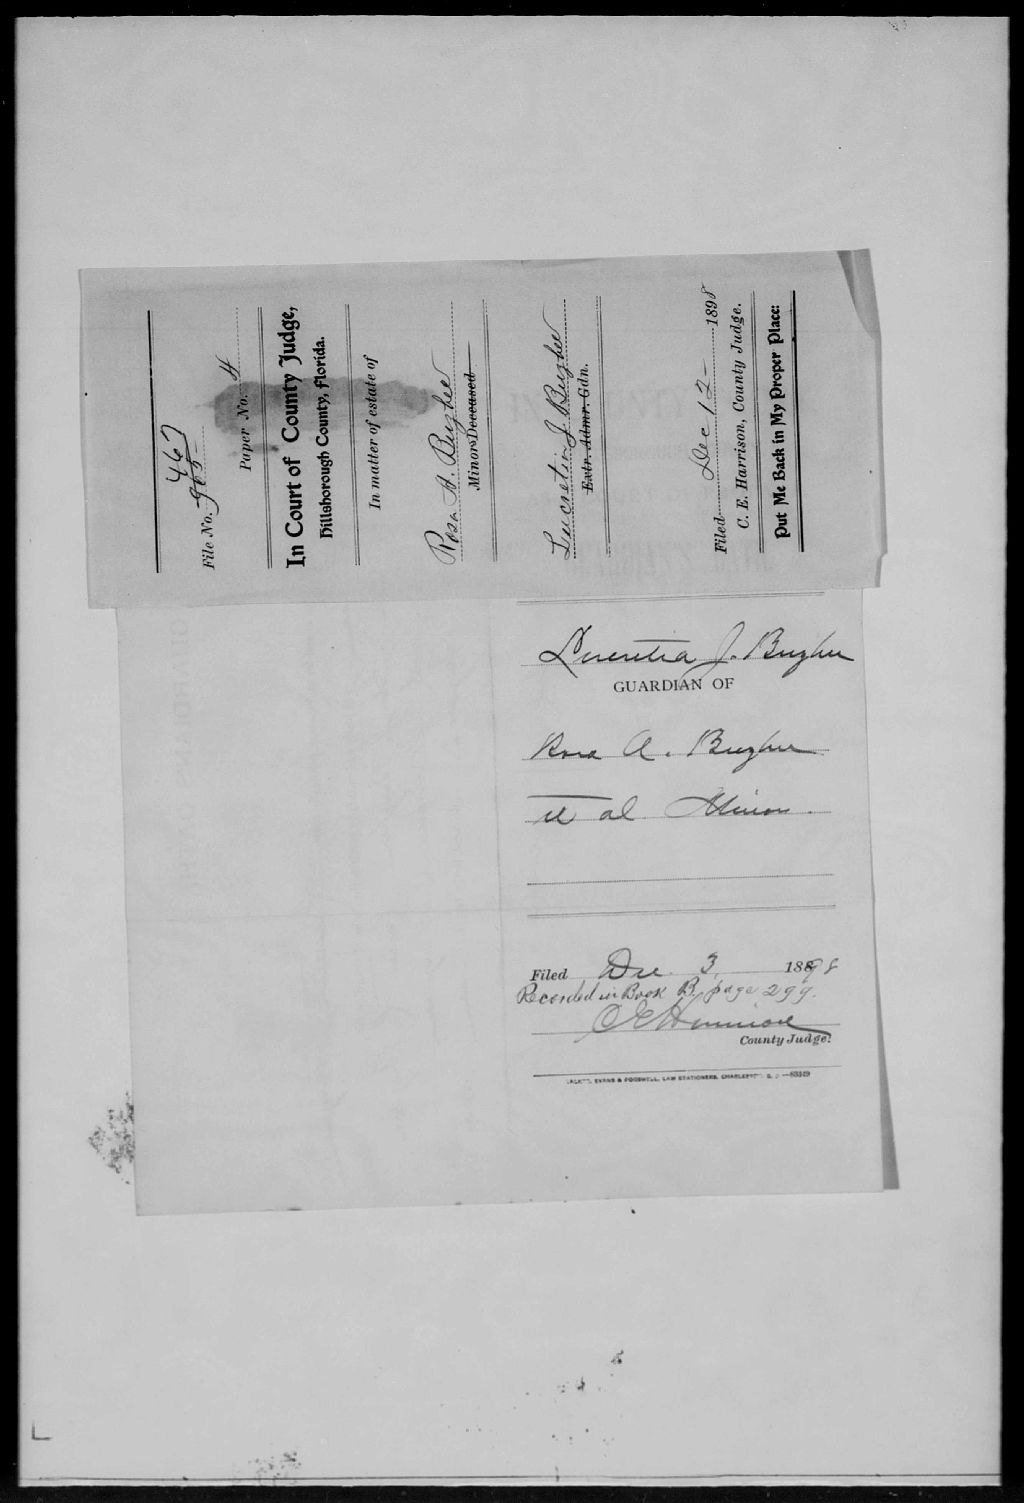 File No. 905 467
Paper No. 4
In Court of County Judge,
Hillsborough County, Florida.
In matter of estate of
Rosa A. Bugbee
Minors Deceased
Lucretia J. Bugbee
Extr. Admr. Gdn.
Filed Dec 12 1898
C. E. Harrison, County Judge.
Put Me Back in My Proper Place:
Lucretia J. Bugbee
GUARDIAN OF
Rosa A. Bugbee
et al Minors.
Filed Dec. 3, 1898
Recorded in Book B, page 299.
C E Harrison
County Judge.
EVANS & COGSWELL, LAW STATIONERS, CHARLESTON, S. C.